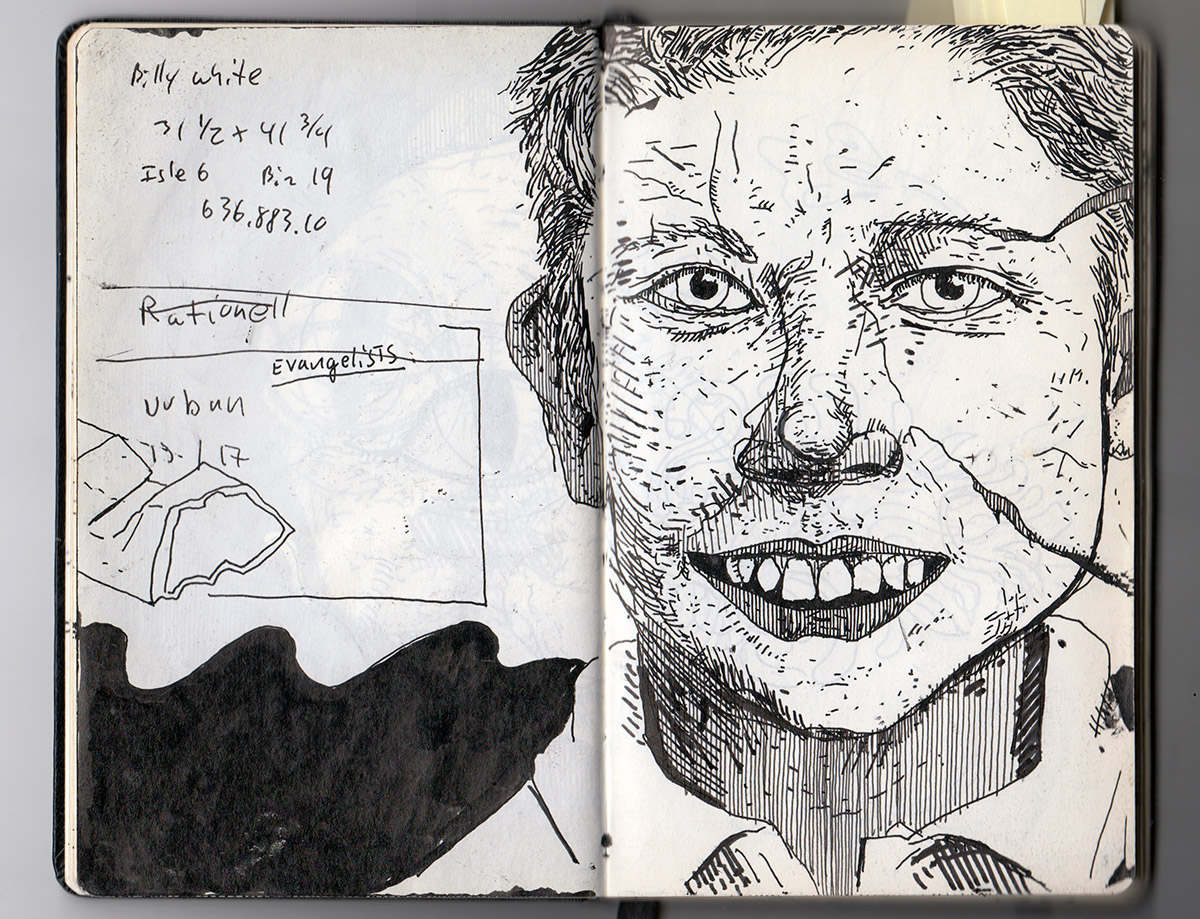 Billy white
31 1/2 x 41 3/4
Isle 6 Bin 19
636.883.10
Rationell
Evangelists
urban